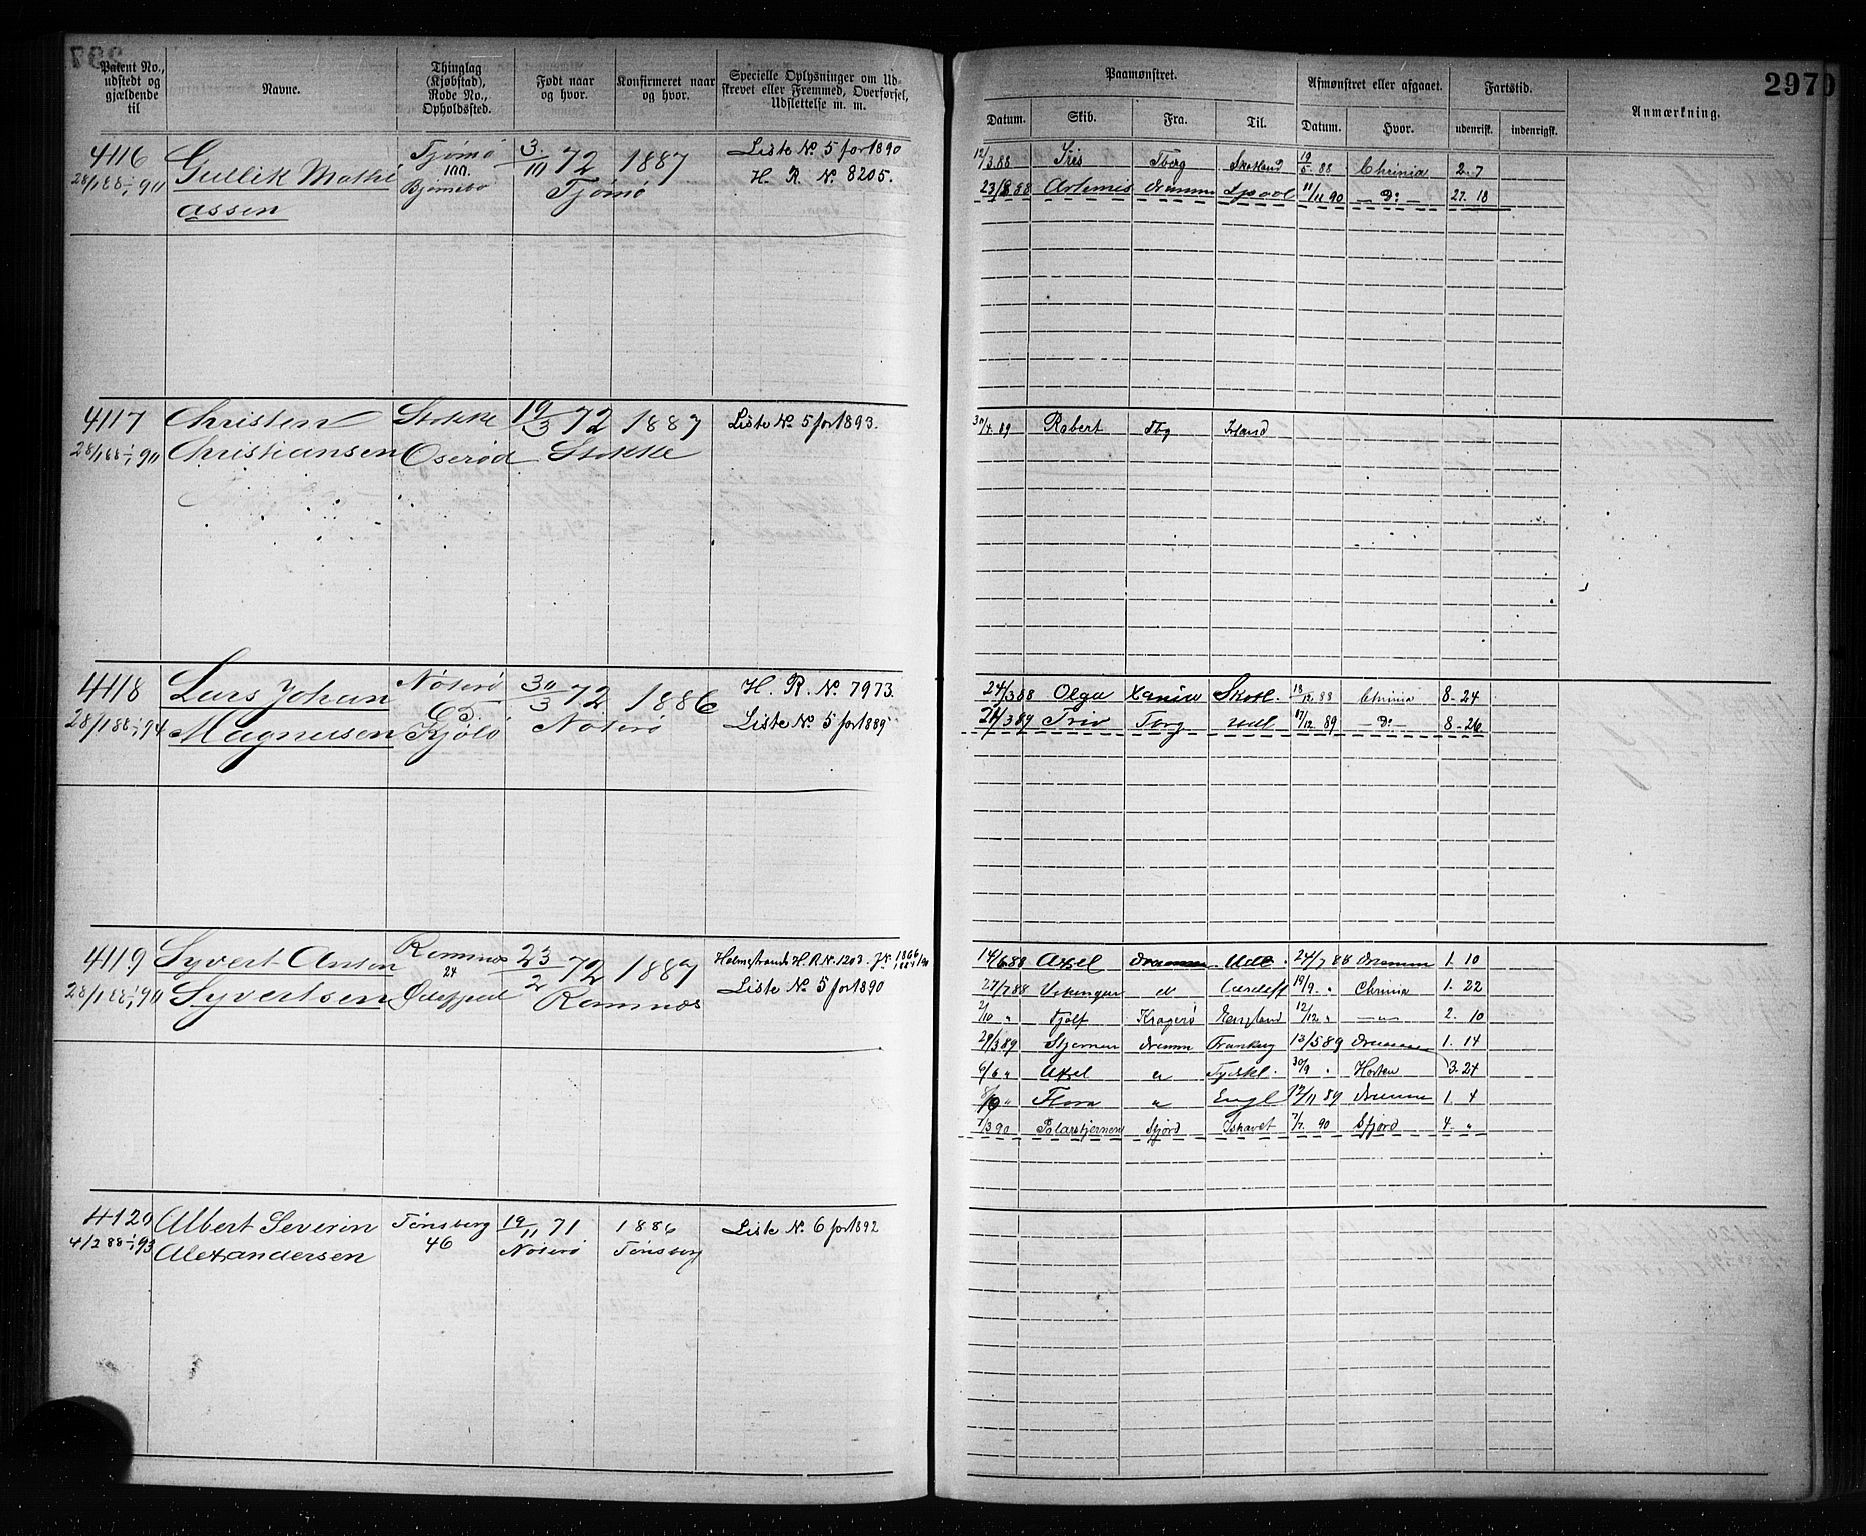 2970
Patent No., udstedt og gjældende til
Navne.
Thinglag (Kjøbstad), Rode No., Opholdssted.
Født naar og hvor.
Konfirmeret naar og hvor.
Specielle Oplysninger om Udskrevet eller Fremmed, Overførsel, Udslettelse m. m.
Paamønstret.
Afmønstret eller afgaaet.
Fartstid.
Anmærkning.
Datum. Skib. Fra. Til. Datum. Hvor. udenrigsk. indenrigsk.
4116 Gullik Mathi Tjømø 3/10 72 1887 Liste No 5 for 1890
28/1 88-1/1 91 assen Tjømø H. R. No 8205.
12/3 88 Iris Tbrg Skotland 19/5 88 Chrinia 2. 7
23/8 88 Artemis Dramm Lpool 11/11 90 — Do — 27. 18
4117 Christen Stokke 19/3 72 1887 Liste No 5 for 1893.
28/1 88-1/1 91 Christiansen Oserød Stokke
30/4 89 Robert Tbg Irland
4118 Lars Johan Nøterø 30/3 72 1886 H. R. No 7973.
28/1 88-1/1 94 Magnusen Kjøló Nøterø Liste No 5 for 1889
24/3 88 Olga Xania Skotl. 18/12 88 Chrinia 8 - 24
26/3 89 Trio Tbrg Udl 17/12 89 — Do — 8 - 26
4119 Syvert Anton Ramnæs 23/2 72 1887 Holmestrands H. R. No 1203.
24
28/1 88-1/1 91 Syvertsen Ramnæs Liste No 5 for 1890
14/6 88 Axel Drammen Udl. 24/7 88 Dramm 1. 10
27/7 88 Vikingur " Cardiff 19/9 " Chrinia 1. 22
2/10 " Fjolf Kragerø England 12/12 " — " — 2. 10
29/3 89 Stjernen Dramm Frankrg 13/5 89 Dramm 1. 14
6/6 " Axel " Tydskl. 30/9 " Horten 3. 24
8/10 " Flora " Engl 12/11 89 Dramm 1. 4
7/3 90 Polarstjernen Sfjord Ishavet 7/7. 90 Sfjord 4. "
4120 Albert Severin Tønsberg 19/11 71 1886 Liste No 6 for 1892
4/2 88-1/1 93 Alexandersen 46 Nøterø Tønsberg